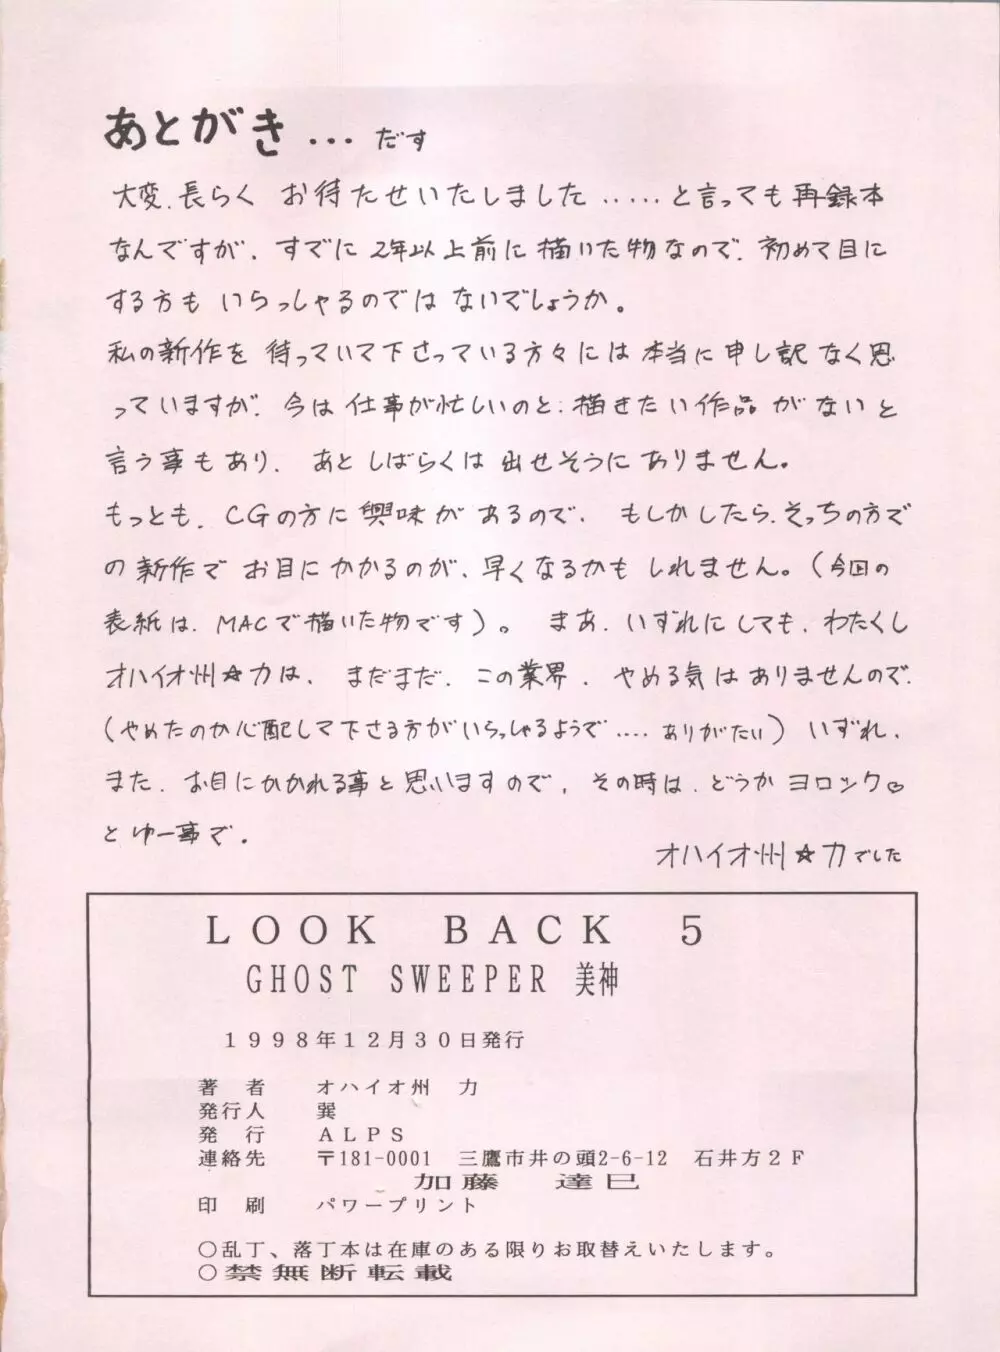 あとがき・・・だす
大変、長らく お待たせいたしました・・・・・と言っても再録本
なんですが、すでに2年以上前に描いた物なので、初めて目に
する方も いらっしゃるのでは ないでしょうか。
私の新作を 待っていて下さっている方々には本当に申し訳なく思
っていますが、今は仕事が忙しいのと、描きたい作品がないと
言う事もあり、あとしばらくは出せそうにありません。
もっとも、CGの方に興味があるので、もしかしたら、そっちの方で
の新作で お目にかかるのが、早くなるかもしれません。(今回の
表紙は、MACで描いた物です)。 まあ、いずれにしても、わたくし
オハイオ州☆力は、まだまだ、この業界、やめる気はありませんので、
(やめたのか心配して下さる方がいらっしゃるようで・・・・ありがたい)いずれ、
また、お目にかかれる事と思いますので、その時は、どうかヨロシク♡
とゆー事で。
オハイオ州☆力でした
LOOK BACK 5
GHOST SWEEPER 美神
1998年12月30日発行
著 者 オハイオ州 力
発行人 巽
発 行 ALPS
連絡先 〒181-0001 三鷹市井の頭2-6-12 石井方2F
加藤 達巳
印 刷 パワープリント
○乱丁、落丁本は在庫のある限りお取替えいたします。
○禁無断転載